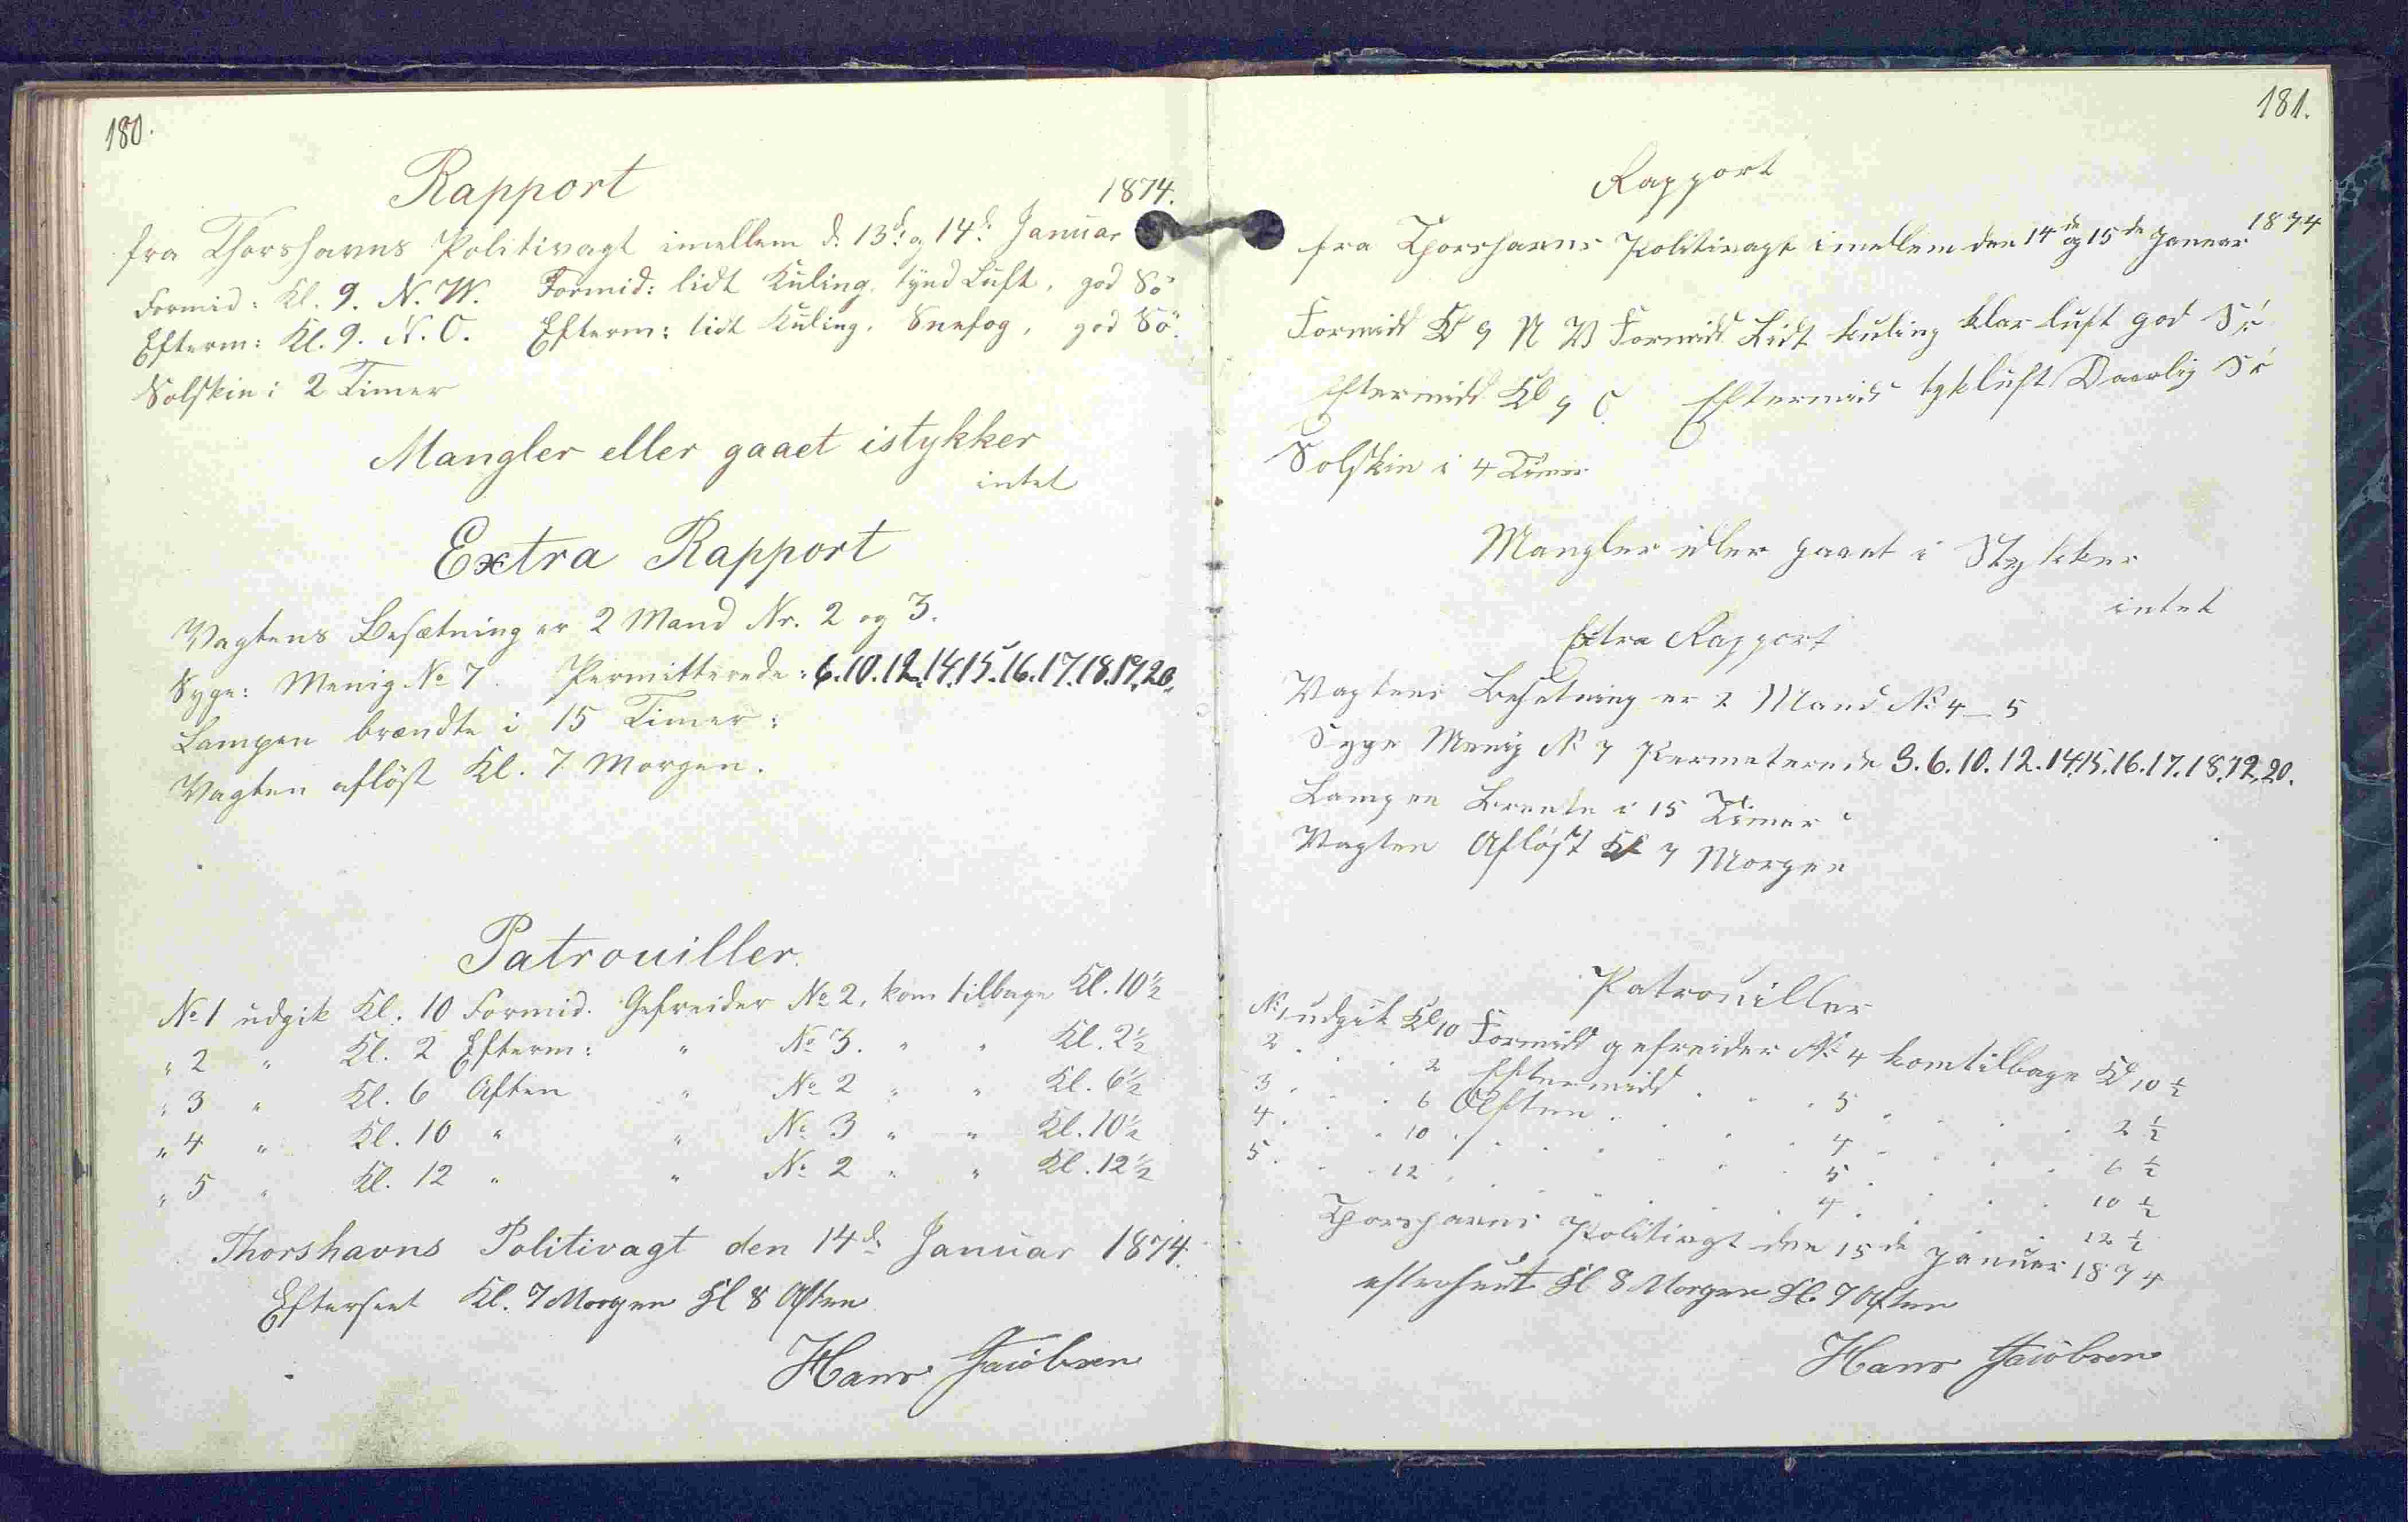 180.
Rapport
1874.
fra Thorshavns Politivagt imellem d. 13d: og 14d: Januar
Formid: Kl. 9. N.W. Formid: lidt Kuling, tynd Luft, god Sö
Efterm: Kl. 9. N.O. Efterm: lidt Kuling, Snefog, god Sö.
Solskin i 2 Timer
Mangler eller gaaet istykker
intet
Extra Rapport
Vagtens Besætning er 2 Mand Nr. 2 og 3.
Syge: Menig No 7. Permitterede: 6.10.12.14.15.16.17.18.19.20.
Lampen brændte i 15 Timer:
Vagten aflöst Kl. 7 Morgen.
Patrouiller.
No 1 udgik Kl. 10 Formid. Gefreider No 2, kom tilbage Kl. 10½
" 2 " Kl. 2 Efterm: " No 3. " " Kl. 2½
" 3 " Kl. 6 Aften " No 2 " " Kl. 6½
" 4 " Kl. 10 " " No 3 " " Kl. 10½
" 5 " Kl. 12 " " No 2 " " Kl. 12½
Thorshavns Politivagt den 14d: Januar 1874.
Efterseet Kl. 7 Morgen Kl 8 Aften
Hans Jacobsen
181.
Rapport
fra Thorshavns Politivagt imellem den 14de og 15de Januar 1874
Formidd Kl 9 N W Formidd Lidt kuling klar luft god Sø
Eftermidd Kl 9 O Eftermidd tykluft Daarlig Sø
Solskin i 4 Timer
Mangler eller gaaet i Stykker
intet
Extra Rapport
Vagtens Besetning er 2 Mand No 4 _ 5
Syge Menig No 7 Permeterede 3.6.10.12.14.15.16.17.18.19.20.
Lampen Brente i 15 Timer
Vagten Afløst Kl 7 Morgen
Patrouiller
No 1 udgik Kl 10 Formidd gefreider No 4 kom tilbage Kl 10 ½
2 . . . 2 Eftermidd . . . 5 . . . 2 ½
3 . . . 6 Aften . . . 4 . . . 6 ½
4 . . . 10 . . . . 5 . . . 10 ½
5 . . . 12 . . . . 4 . . . 12 ½
Thorshavns Politivagt den 15de Januar 1874
efterseet Kl 8 Morgen Kl. 7 Aften
Hans Jacobsen